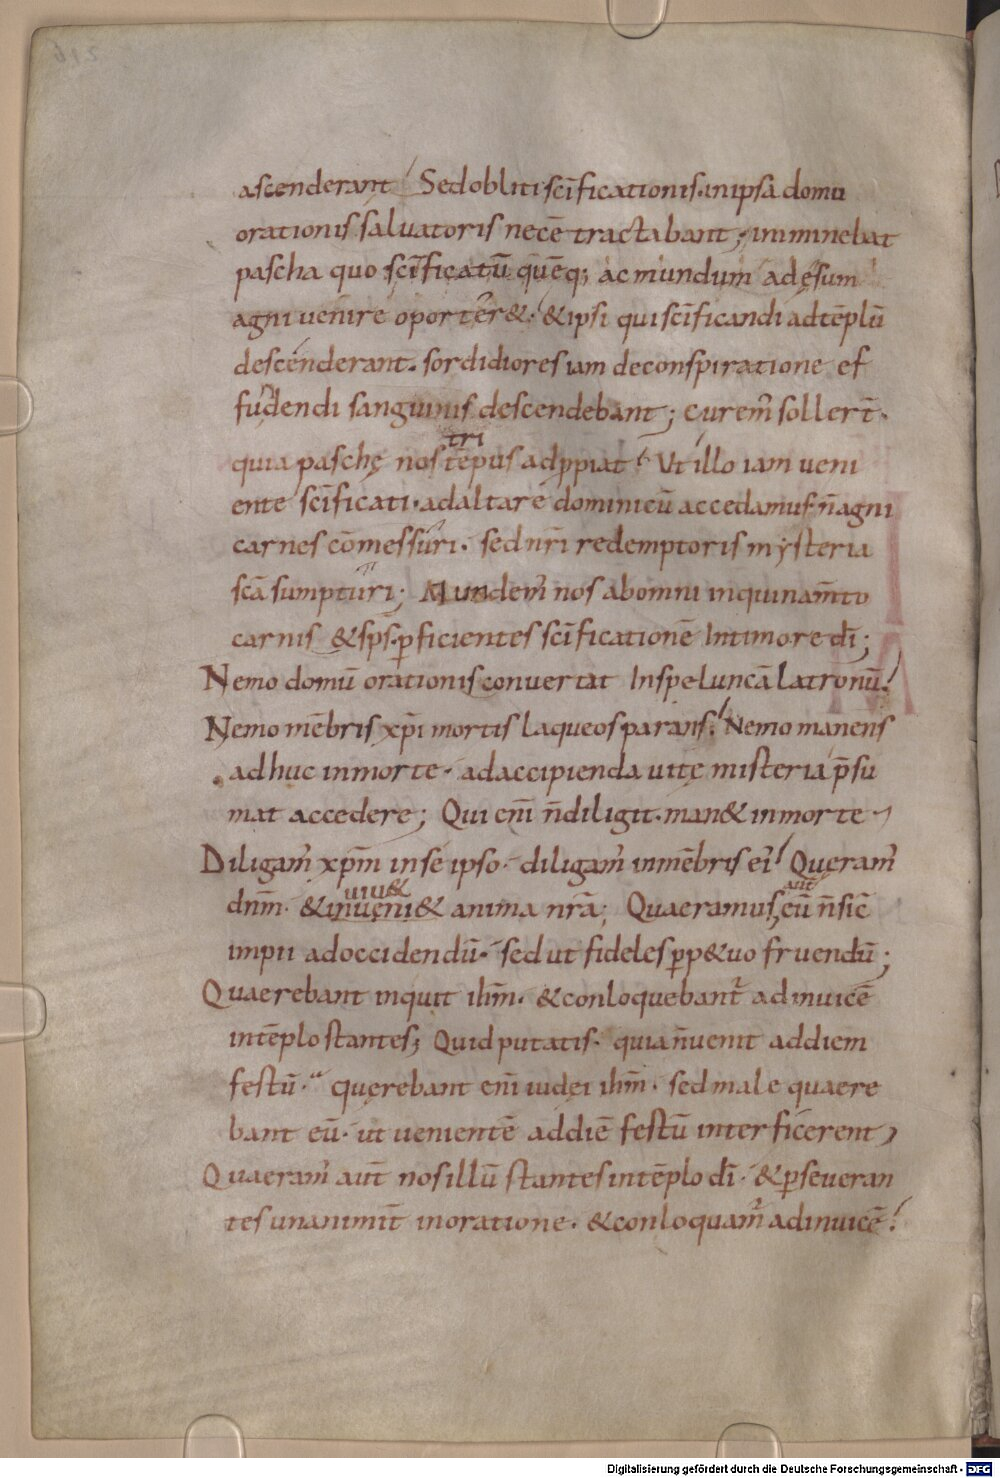 ascenderant Sed obliti sc̄ificationis. in ipsa domu
orationis salvatoris necē tractabant; imminebat
pascha quo sc̄ificatū quēq; ac mundum ad ęsum
agni uenire oporter&. & ipsi qui sc̄ificandi ad tēplū
descenderant. sordidiores iam de conspiratione ef
fundendi sanguinis descendebant; curem̄ sollert̄.
tri
quia paschę nos tēpus adp̱piat Ut illo iam ueni
ente sc̄ificati. ad altare dominicū accedamus n̄ agni
carnes cōmessuri. sed nr̄i redemptoris mysteria
sc̄a sumpturi; Mundem̄ nos ab omni inquinam̄to
carnis & sp̄s. ꝑficientes sc̄ificationē In timore dī;
Nemo domū orationis convertat In speluncā latronū.
Nemo mēbris xp̄i mortis laqueos parans. Nemo manens
adhuc in morte. ad accipienda uitę misteria p̄su
mat accedere; Qui en̄i n̄ diligit. man& in morte
Diligam̄ xp̄m in se ipso. diligam̄ in mēbris ei᾽ Quęram̄
uiu& aut̄
dn̄m. & inueni& anima nr̄a; Quaeramus eū n̄ sic̄
impii ad occidendū. sed ut fideles ꝑp&uo fruendū;
Quaerebant inquit ih̄m. & conloquebant᾽ ad inuicē
in tēplo stantes; Quid putatis. quia n̄ uenit ad diem
festū. Quęrebant en̄i iudęi ih̄m. sed male quaere
bant eū. ut uenientē ad diē festū interficerent
Quaeram̄ aut̄ nos illū stantes in tēplo dī. & ꝑseueran
tes unanimit̄ in oratione. & conloquam̄᾽ ad inuicē.
Digitalisierung gefördert durch die Deutsche Forschungsgemeinschaft - DFG